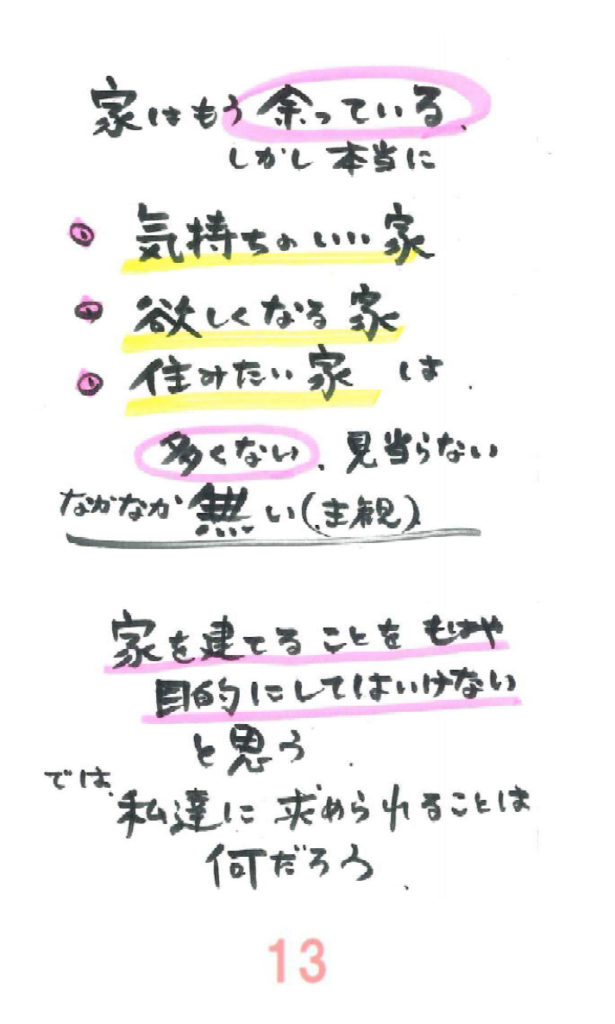 家はもう余っている、
しかし本当に
① 気持ちのいい家
① 欲しくなる家
① 住みたい家 は、
多くない、見当らない
なかなか無い(主観)
家を建てることをもはや
目的にしてはいけない
と思う、
では、
私達に求められることは
何だろう、
13